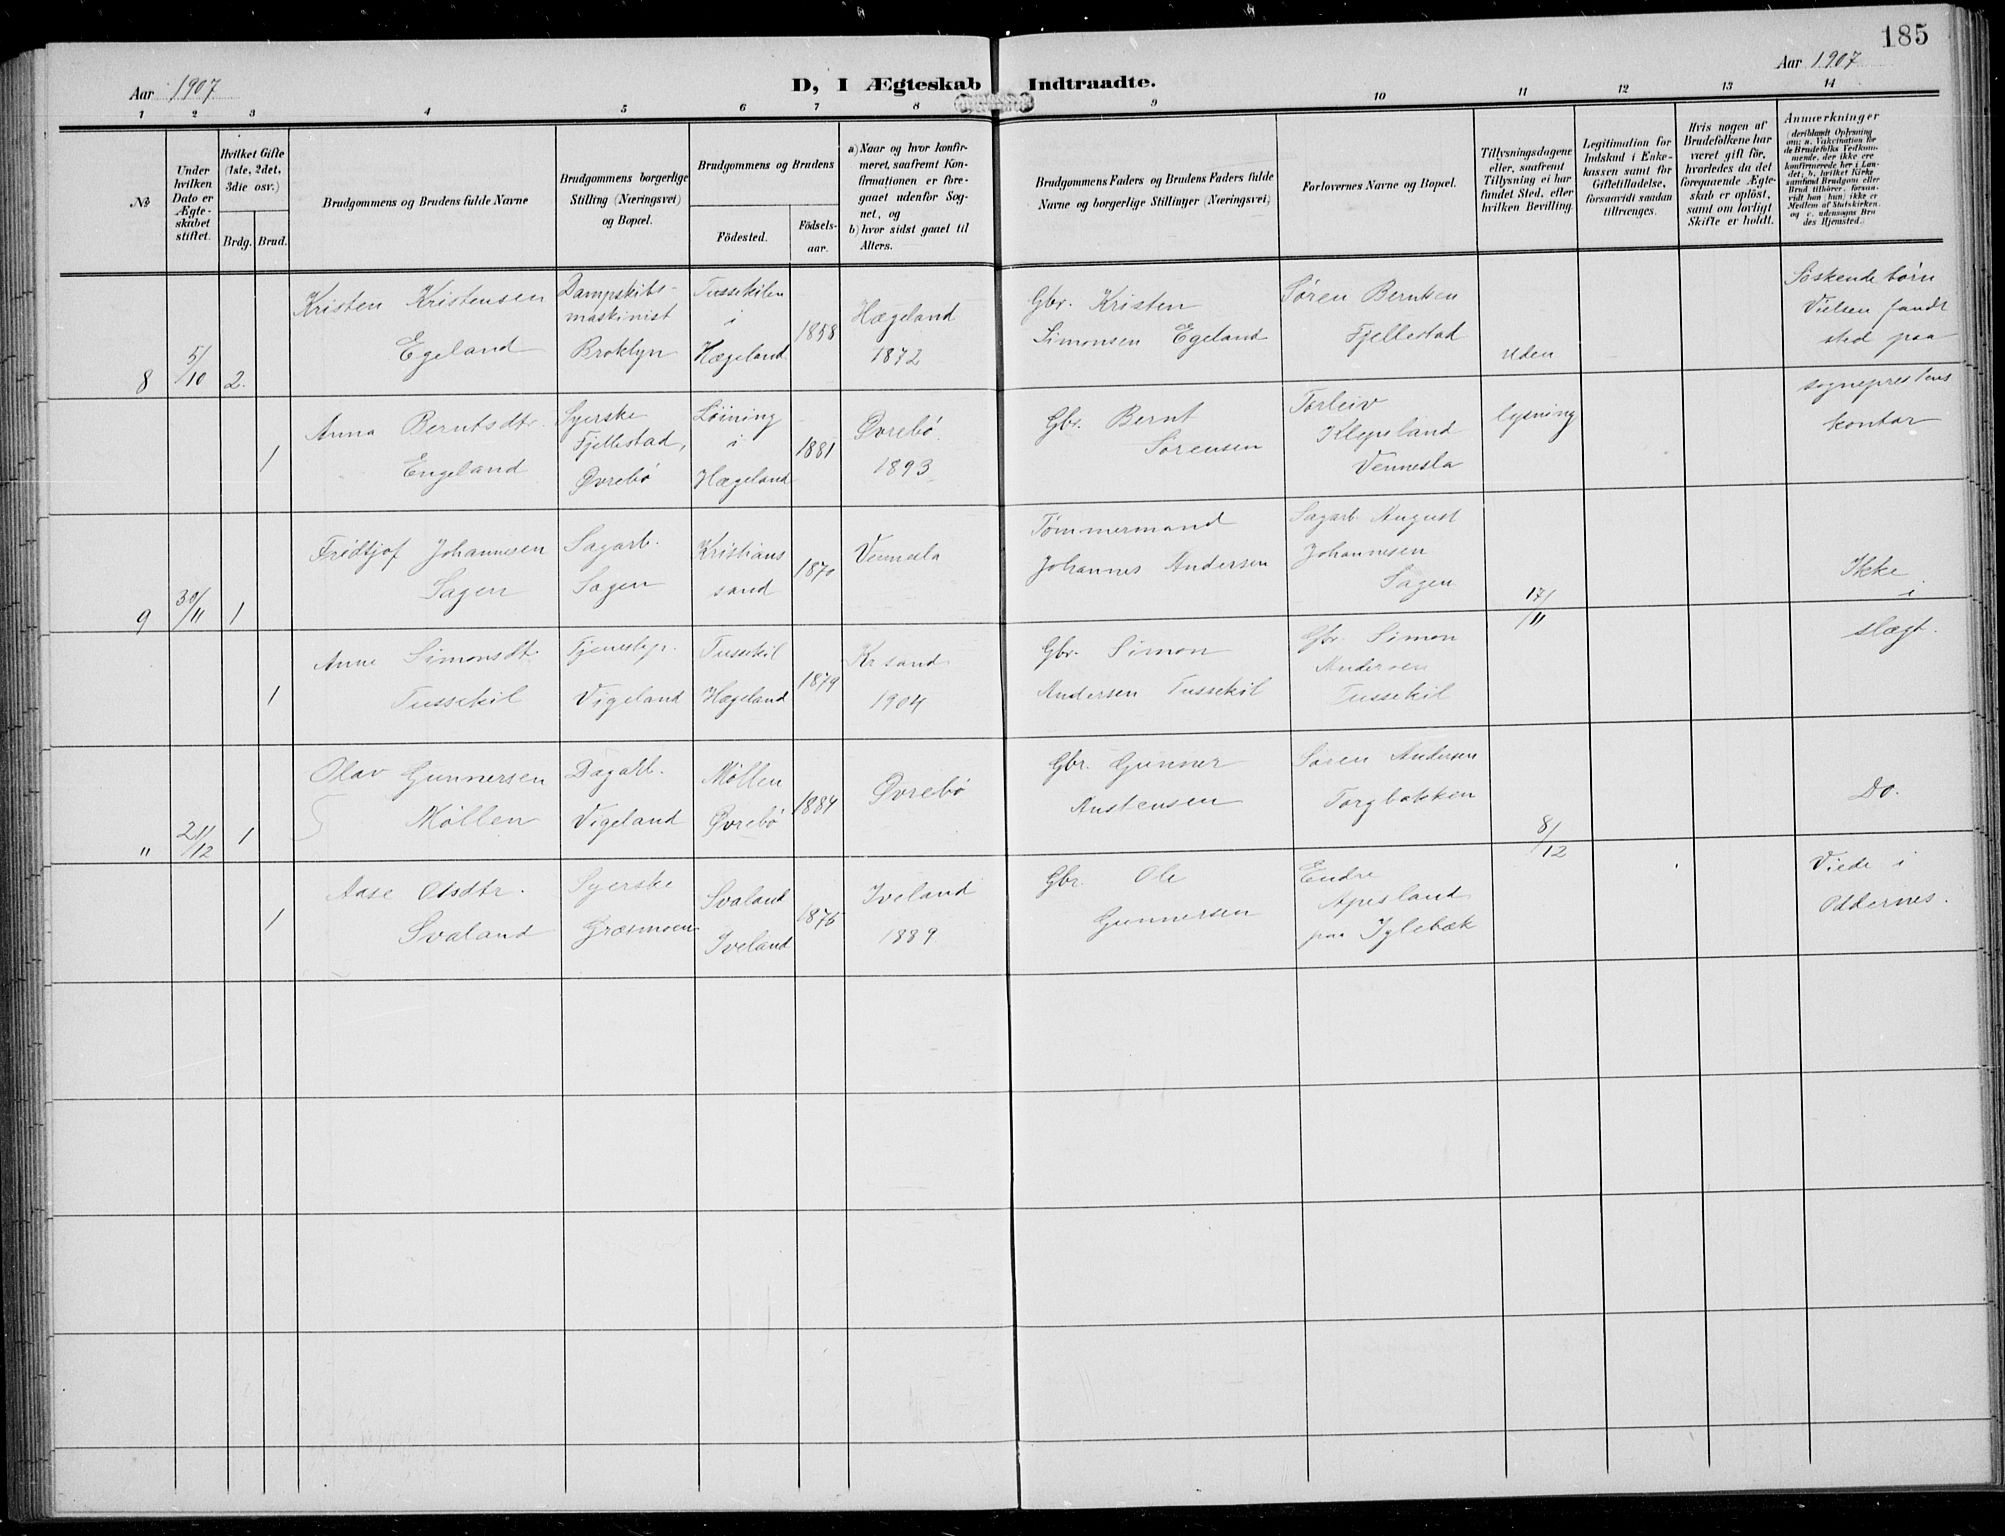 185
Aar 1907
D, I Ægteskab Indtraadte.
Aar 1907
1 2 3 4 5 6 7 8 9 10 11 12 13 14
№
Under hvilken Dato er Ægteskabet stiftet.
Hvilket Gifte (1ste, 2det, 3die osv.)
Brdg. Brud.
Brudgommens og Brudens fulde Navne
Brudgommens borgerlige Stilling (Næringsvei) og Bopæl.
Brudgommens og Brudens
Födested.
Födselsaar.
a) Naar og hvor konfirmeret, saafremt Konfirmationen er foregaaet udenfor Sognet, og
b) hvor sidst gaaet til Alters.
Brudgommens Faders og Brudens Faders fulde Navne og borgerlige Stillinger (Næringsvei)
Forlovernes Navne og Bopæl.
Tillysningsdagene eller, saafremt Tillysning ei har fundet Sted, efter hvilken Bevilling
Legitimation for Indskud i Enkekassen samt for Giftetilladelse, forsaavidt saadan tiltrænges.
Hvis nogen af Brudefolkene har været gift før, hvorledes da det foregaaende Ægteskab er oplöst, samt om lovligt Skifte er holdt.
Anmærkninger
(deriblandt Oplysning om: a. Vakcination for de Brudefolks Vedkommende, der ikke ere konfirmerede her i Landet; b. hvilket Kirkesamfund Brudgom eller Brud tilhörer, forsaavidt han (hun) ikke er Medlem af Statskirken, og c. udensogns Brudes Hjemsted.)
8 5/10 2.
Kristen Kristensen
Egeland
Dampskibs-
maskinist
Broklyn
Tussekilen
i
Hægeland
1858
Hægeland
1872
Gbr. Kristen
Simonsen Egeland
Søren Berntsen
Fjellestad
Uden
Søskendebørn
Vielsen fandt
sted paa
1
Anna Berntsdtr.
Engeland
Syerske
Fjellestad,
Øvrebö
Løining
i
Hægeland
1881
Øvrebö.
1893
Gbr. Bernt
Sørensen
Torleiv
Klepsland
Vennesla
lysning
sogneprestens
kontor
9 30/11 1
Fridtjof Johannesen
Sagen
Sagarb.
Sagen
Kristians
sand
1870
Vennesla
Tømmermand
Johannes Andersen
Sagarb. August
Johannesen
Sagen
17/11
Ikke
i
slægt.
1
Anne Simonsdtr.
Tussekil
Tjenestep.
Vigeland
Tussekil
Hægeland
1879
Kr sand
1904
Gbr. Simon
Andersen Tussekil
Gbr. Simon
Andersen
Tussekil
" 21/12 1
Olav Gunnersen
Möllen
Dagarb.
Vigeland
Möllen
Øvrebö
1884
Øvrebö
Gbr. Gunner
Austensen
Søren Andersen
Torgbakken
8/12
Do.
1
Aase Olsdtr.
Svaland
Syerske
Græsmoen
Svaland
Iveland
1875
Iveland
1889
Gbr. Ole
Gunnersen
Endre
Apesland
paa Iglebæk
Viede i
Oddernes.